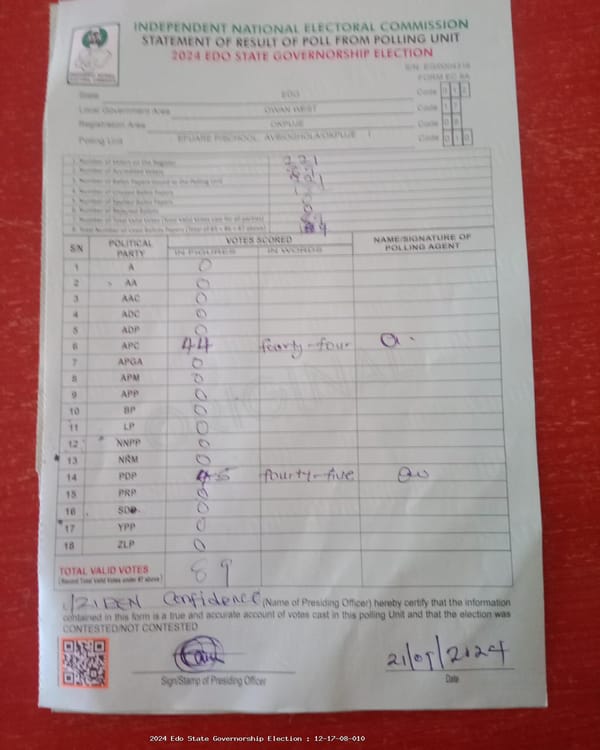 INDEPENDENT NATIONAL ELECTORAL COMMISSION
STATEMENT OF RESULT OF POLL FROM POLLING UNIT
2024 EDO STATE GOVERNORSHIP ELECTION
FORM EC 8A
State EDO Code
Local Government Area OWAN WEST Code
Registration Area OKPUJE Code
Polling Unit Code
1. Number of Voters on the Register 221
2. Number of Accredited Voters
3. Number of Ballot Papers Issued to the Polling Unit
4. Number of Unused Ballot Papers
5. Number of Spoiled Ballot Papers
6. Number of Rejected Ballots
7. Number of Total Valid Votes (Total Valid Votes cast for all parties)
8. Total Number of Used Ballot Papers (Total of #5 + #6 + #7 above)
S/N POLITICAL PARTY VOTES SCORED NAME/SIGNATURE OF POLLING AGENT
IN FIGURES IN WORDS
1 A 0
2 AA 0
3 AAC 0
4 ADC 0
5 ADP 0
6 APC 44 fourty-four
7 APGA 0
8 APM 0
9 APP 0
10 BP 0
11 LP 0
12 NNPP 0
13 NRM 0
14 PDP 45 fourty-five
15 PRP 0
16 SDP 0
17 YPP 0
18 ZLP 0
TOTAL VALID VOTES 89
(Record Total Valid Votes under #7 above)
Confidence (Name of Presiding Officer) hereby certify that the information
contained in this form is a true and accurate account of votes cast in this polling Unit and that the election was
CONTESTED/NOT CONTESTED
21/09/2024
Sign/Stamp of Presiding Officer Date
2024 Edo State Governorship Election : 12-17-08-010